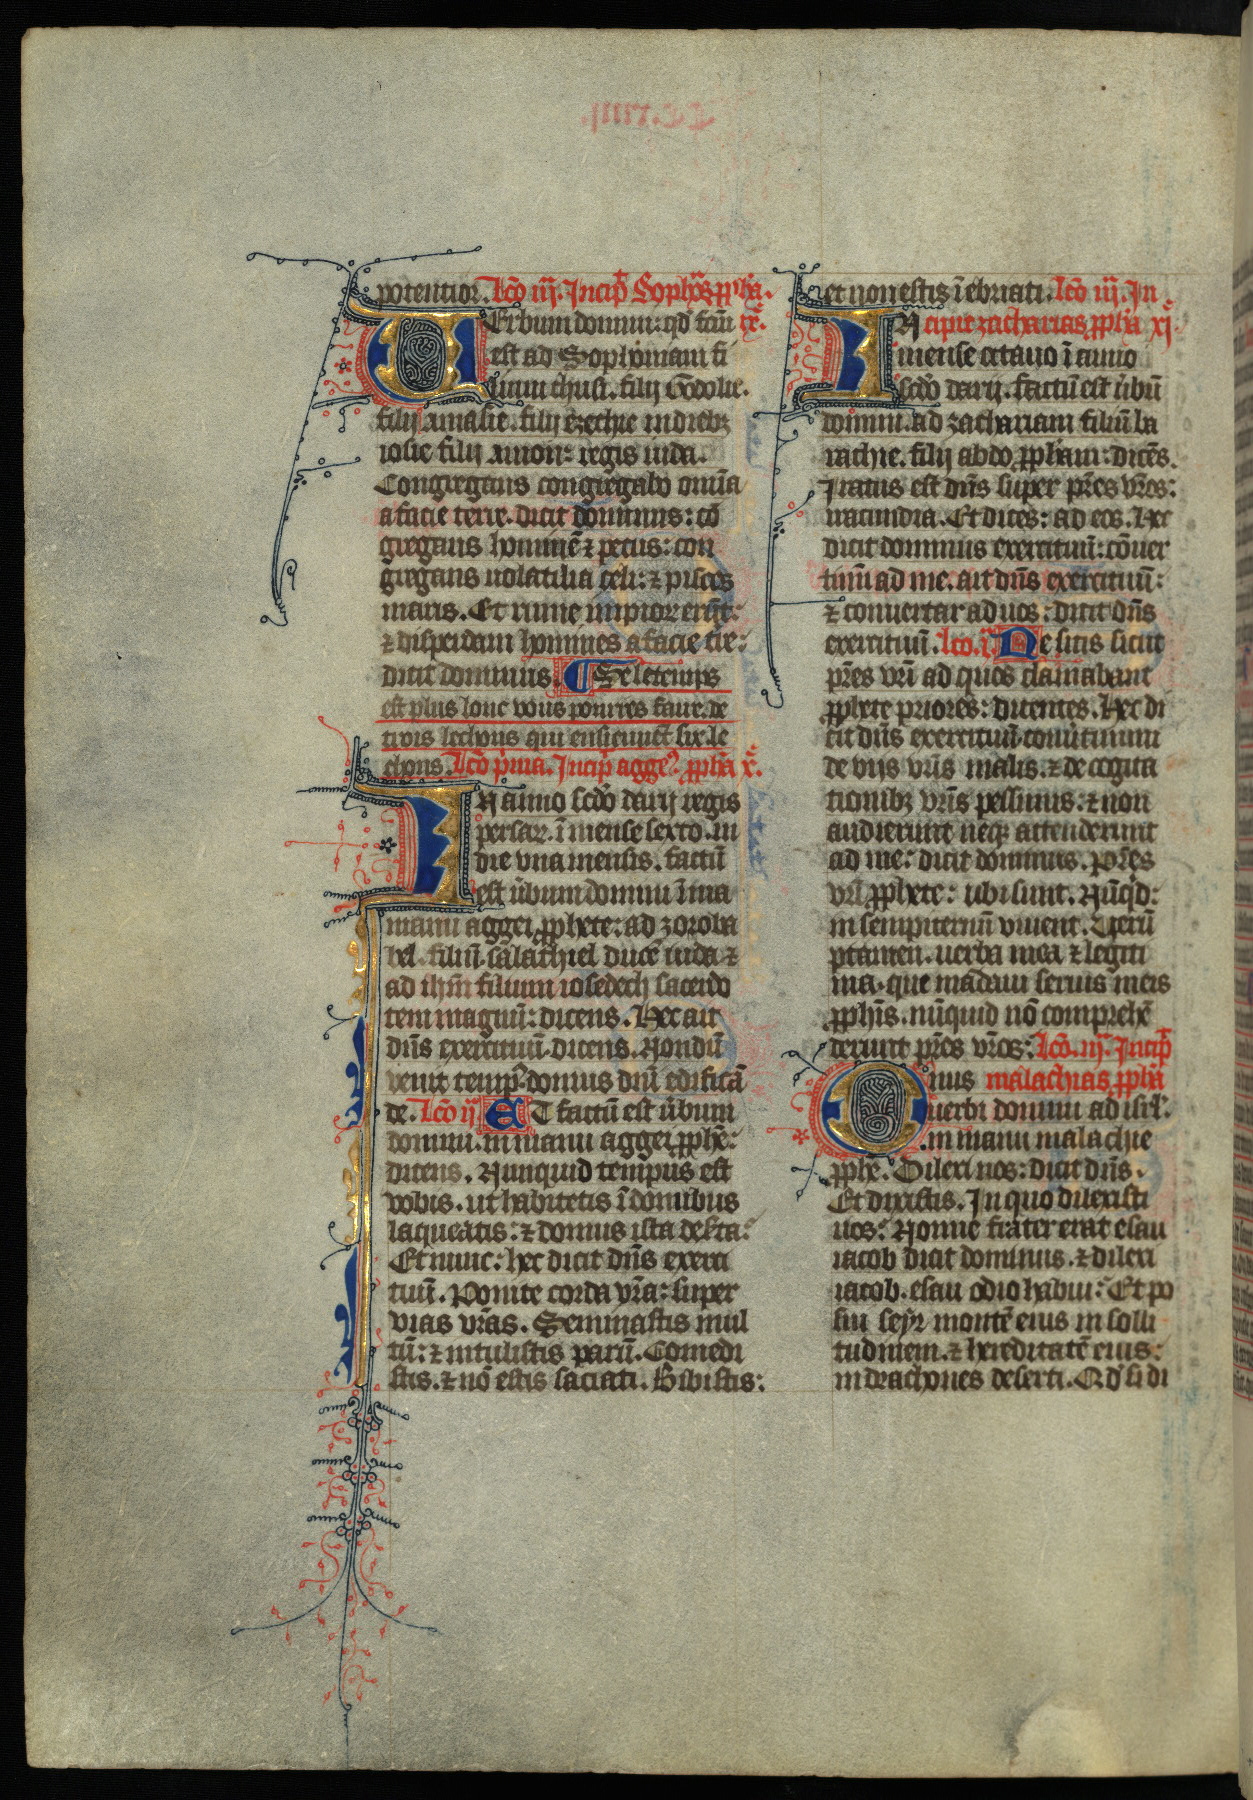 potentior. Lcō iij. Incip̄ Sophōs ꝓph̄a.
Erbum domini: qd̄ fcūi ix.
est ad Sophoniam fi
lium chusi. filij Godolie.
filij amasie. filij ezechie in diebꝫ
iosie filij amon: regis iuda.
Congregans congregabo om̄ia
a facie terre. dicit dominus: cō
gregans hominē ⁊ pecus: con
gregans uolatilia celi: ⁊ pisces
maris. Et ruine impior̄ erūt:
⁊ disperdam homines a facie tre:
dicit dominus. Se le temps
est plus lonc vous pourres faire de
trois lechons qui ensieuuēt six le
chons. Lcō p̄ma. Incip̄ agge⁹. ꝓph̄a x.
N anno scd̄o darij regis
persaꝝ. ī mense sexto. in
die vna mensis. factū
est ūbum domini ī ma
manu aggei ꝓphete: ad zoroba
bel. filiū. salathiel ducē iuda ⁊
ad ih̄m filium iosedech sacerdo
tem magnū: dicens. Hec ait
dn̄s exercituū. dicens. Nondū
venit temp⁹ domus dn̄i edificā
de. Lcō ij. ET factū est ūbum
domini. in manu aggei ꝓphē:
dicens. Nunquid tempus est
vobis. ut habitetis ī domibus
laqueatis: ⁊ domus ista deserta:
Et nunc: hec dicit dn̄s exerci
tuū. Ponite corda vr̄a: super
vias vr̄as. Seminastis mul
tū: ⁊ intulistis parū. Comedi
stis. ⁊ nō estis saciati. Bibistis:
et non estis īebriati. Lcō iij. In
N cipit zacharias ꝓph̄a xj.
mense octauo ī anno
scd̄o darij. factū est ūbū
domini. ad zachariam filiū ba
rachie. filij abdo ꝓpham: dicēs.
Iratus est dn̄s super pr̄es vr̄os:
iracundia. Et dices: ad eos. Hec
dicit dominus exercituū: cōuer
timī ad me. ait dn̄s exercituū:
⁊ conuertar ad uos: dicit dn̄s
exercituū. lco. ī. Ne sitis sicut
pr̄es vr̄i ad quos clamabant
ꝓphete priores: dicentes. Hec di
cit dn̄s exercituū. conūtimini
de vijs vr̄is malis. ⁊ de cogita
tionibꝫ vr̄is pessimis: ⁊ non
audierunt neqꝫ attenderunt
ad me: dicit dominus. Pr̄es
vr̄i ꝓphete: ubi sunt. Nūqd̄:
in sempiternū viuent. Verū
ptamen. uerba mea ⁊ legiti
ma. que mādaui seruis meis
ꝓphīs. nūquid nō comprehē
derunt pr̄es vr̄os: Lcō. iij. Incip̄
nus malachias ꝓph̄a
uerbi domini ad isrl̄.
in manu malachie
ꝓphe. Dilexi uos: dicit dn̄s.
Et dixistis. In quo dilexisti
nos: Nonne frater erat esau
iacob dicit dominus. ⁊ dilexi
iacob. esau odio habui: Et po
sui seyr montē eius in solli
tudinem. ⁊ hereditatē eius:
in drachones deserti. Qd̄ si di